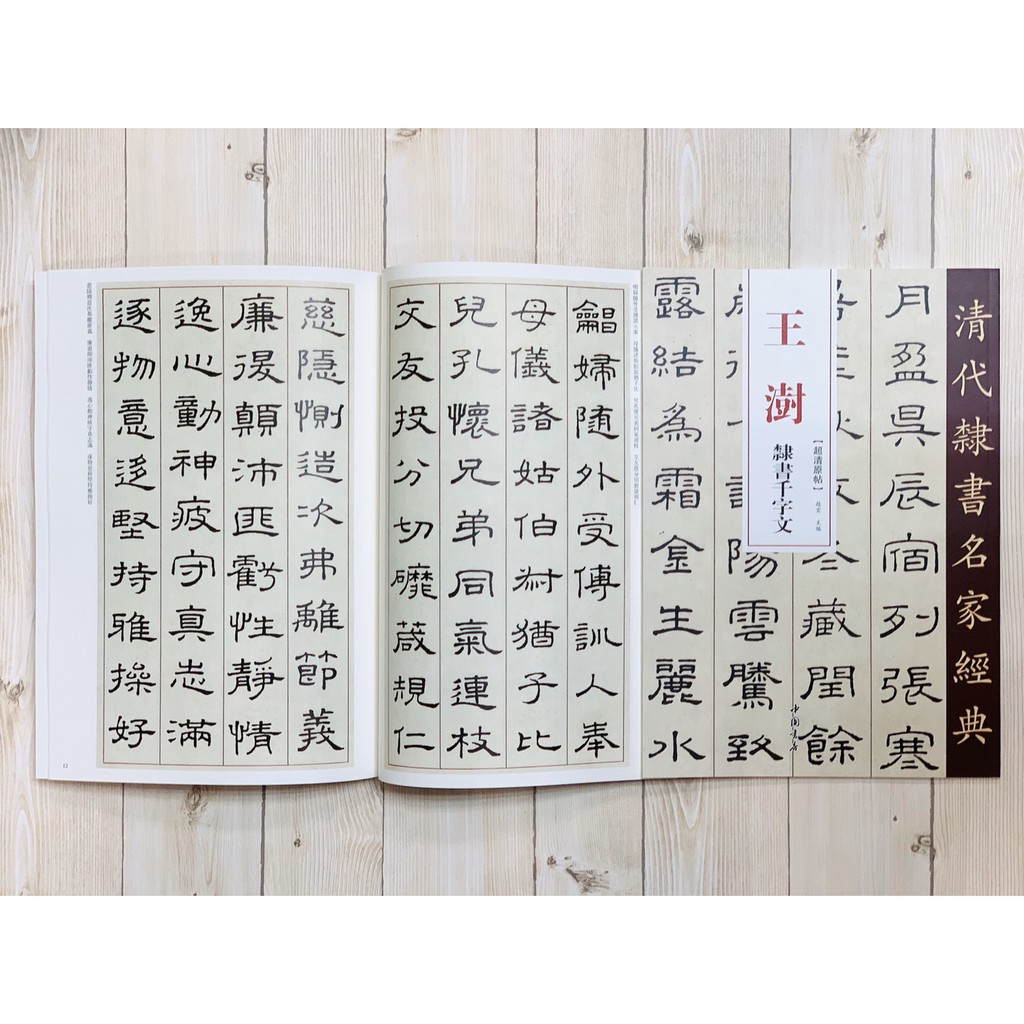 清代隸書名家經典
月盈昃辰宿列張寒
藏閏餘
陽雲騰致
露結為霜金生麗水
王澍
隸書千字文
【超清原帖】
中國書店
唱婦隨外受傅訓人奉
母儀諸姑伯叔猶子比
兒孔懷兄弟同氣連枝
交友投分切磨箴規仁
慈隱惻造次弗離節義
廉退顛沛匪虧性靜情
逸心動神疲守真志滿
逐物意移堅持雅操好
12